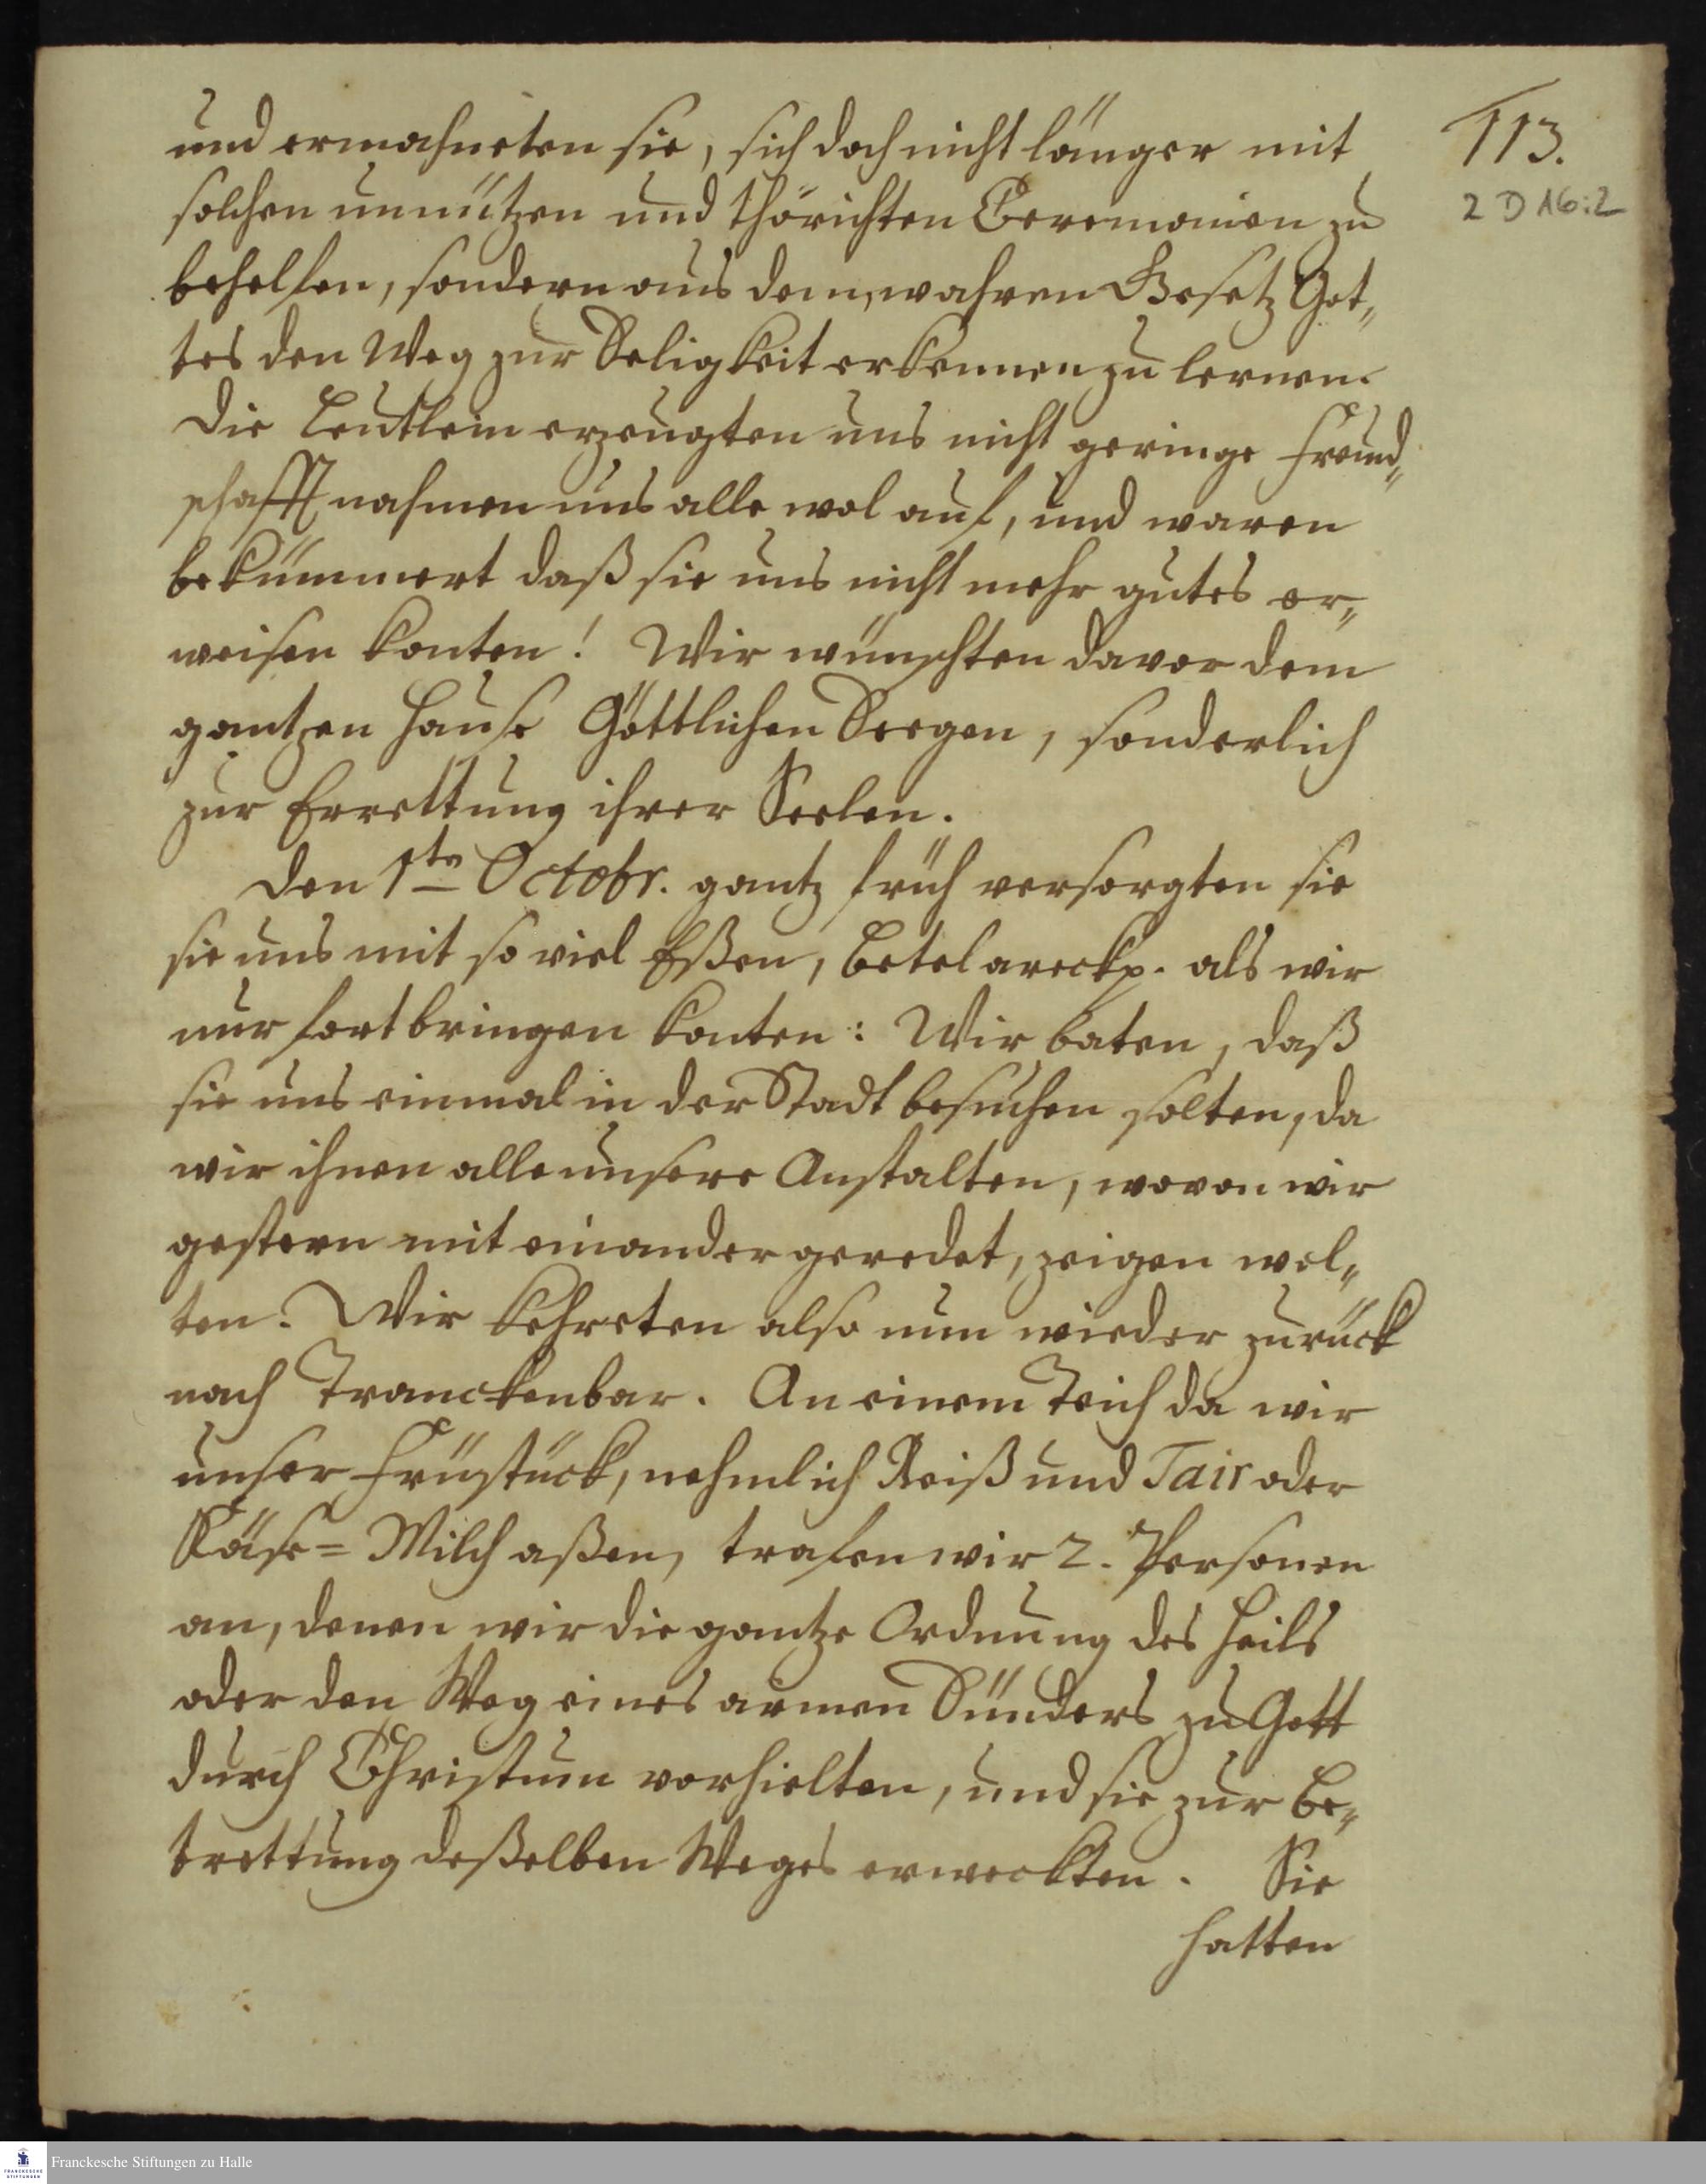 113.
2 D 16:2
und ermahneten sie, sich doch nicht länger mit
solchen unnützen und thörichten Ceremonien zu
behelfen, sondern aus dem, wahren Gesetz Got„
tes den Weg zur Seligkeit erkennen zu lernen.
Die Leutlein erzeugten uns nicht geringe Freund„
schafft nahmen uns alle wol auf, und waren
bekümmert daß sie uns nicht mehr gutes er„
weisen konten! Wir wünschten davor dem
gantzen Hause Göttlichen Seegen, sonderlich
zur Errettung ihrer Seelen.
Den 1ten Octobr. gantz früh versorgten sie
sie uns mit so viel Eßen, Betel areck p. als wir
nur fortbringen konten: Wir baten, daß
sie uns einmal in der Stadt besuchen solten, da
wir ihnen alle unsere Anstalten, wovon wir
gestern mit einander geredet, zeigen wol„
ten. Wir kehreten also nun wieder zurück
nach Tranckenbar. An einem Teich da wir
unser Früstück, nehmlich Reiß und Tair oder
Käse= Milch aßen, trafen wir 2. Personen
an, denen wir die gantze Ordnung des Heils
oder den Weg eines armen Sünders zu Gott
durch Christum vorhielten, und sie zur Be„
trettung deßelben Weges erweckten. Sie
hatten
Franckesche Stiftungen zu Halle
FRANCKESCHE
STIFTUNGEN